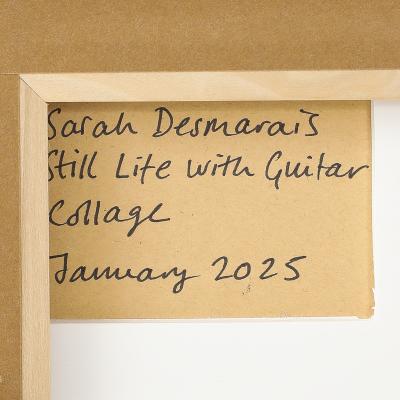 Sarah Desmarais
Still Life with Guitar
Collage
January 2025